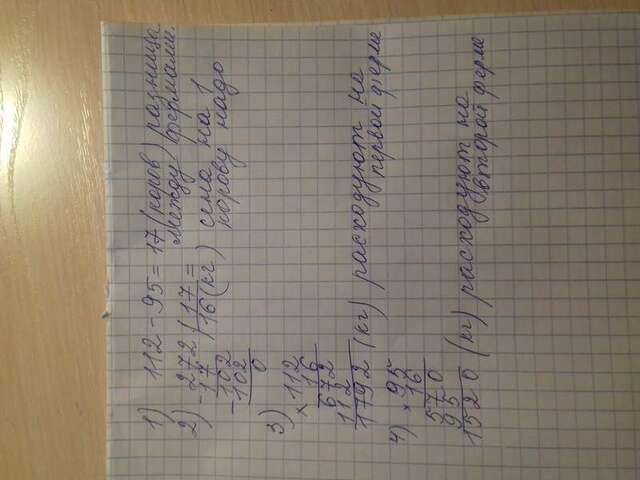 1) 112 - 95 = 17 (коров) разница
между фермами.
2) - 272 | 17 =
17 | 16 (кг) сена на 1
102 корову надо
- 102
0
3) × 112
16
672
112
1792 (кг) расходуют на
первой ферме
4) × 95
16
570
95
1520 (кг) расходуют на
второй ферме